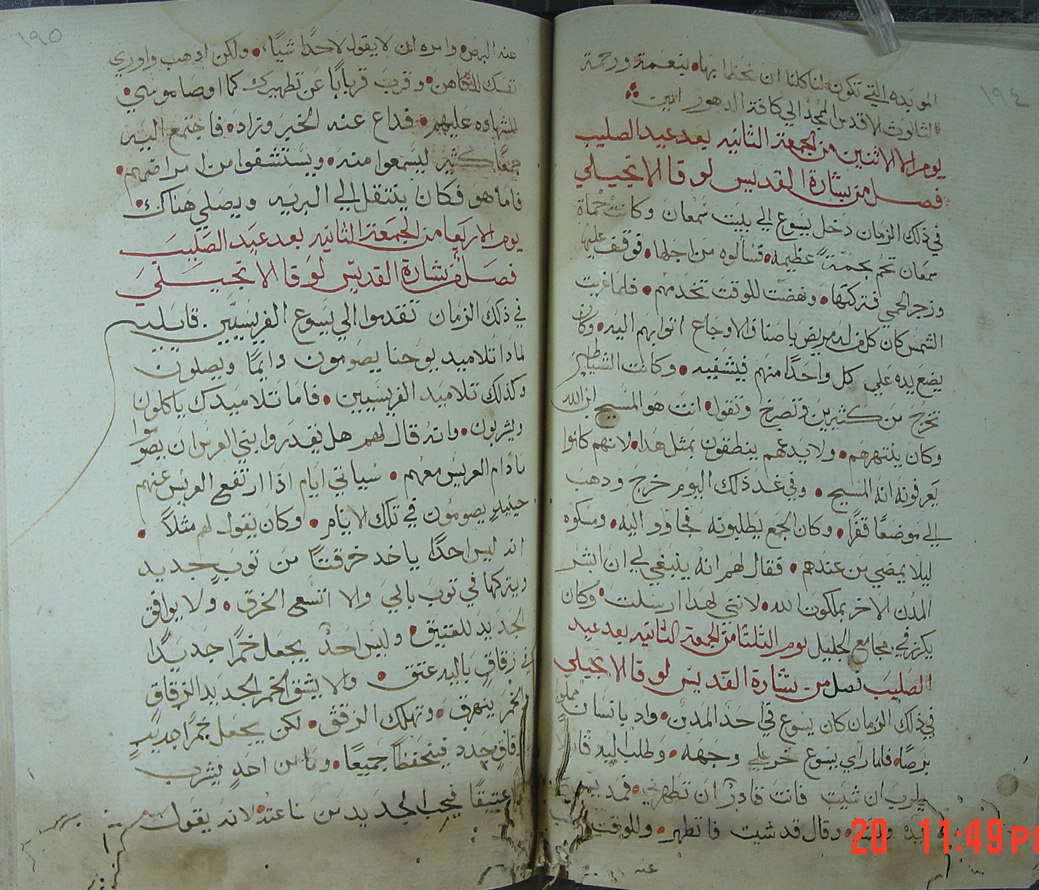 ١٩٤
المويده التي تكون لنا كلنا ان نحظا بها بنعمة ورحمة
الثالوث الاقدس المجد الي كافة الدهور امين
يوم الاثنين من الجمعة الثانيه بعد عيد الصليب
فصل من بشارة القديس لوقا الانجيلي
في ذلك الزمان دخل يسوع الي بيت سمعان وكانت حماة
سمعان تحم بحمة عظيمه فسالوه من اجلها فوقف عليها
وزجر الحمي فتركتها ونهضت للوقت تخدمهم فلما غربت
الشمس كان كل من له مريض باصناف الاوجاع اتوا بهم اليه وكان
يضع يده علي كل واحدا منهم فيشفيه وكانت الشياطين
تخرج من كثيرين وتصرخ وتقول انت هو المسيح ابن الله
وكان ينتهرهم ولا يدعهم ينطقون بمثل هدا لانهم كانوا
يعرفونه انه المسيح وفي غد ذلك اليوم خرج ودهب
الي موضعا قفرا وكان الجمع يطلبونه فجاوو اليه ومسكوه
ليلا يمضي من عندهم فقال لهم انه ينبغي لي ان ابشر
المدن الاخر بملكوت الله لانني لهدا ارسلت وكان
يكرز في مجامع الجليل يوم الثلثا من الجمعة الثانيه بعد عيد
الصليب فصل من بشارة القديس لوقا الانجيلي
في ذلك الزمان كان يسوع في احد المدن واد بانسان مملو
برصا فلما راي يسوع خر علي وجهه وطلب اليه
يارب ان شيت فانت قادر ان تطهرني فمد يسوع
يده ولمسه وقال قد شيت فاتطهر وللوقت
عنه
١٩٥
عنه البرص وامره ان لا يقول لاحدا شيا ولكن ادهب واوري
نفسك للكاهن وقرب قربانا عن تطهيرك كما اوصا موسي
للشهاده عليهم فداع عنه الخبر وزاد فاجتمع اليه
جمعا كثير ليسمعوا منه ويستشفوا من امراضهم
فاما هو فكان ينتقل الي البريه ويصلي هناك
يوم الاربعا من الجمعة الثانيه بعد عيد الصليب
فصل من بشارة القديس لوقا الانجيلي
في ذلك الزمان تقدموا الي يسوع الفريسيين قايليه
لمادا تلاميد يوحنا يصومون دايما ويصلون
وكذلك تلاميد الفريسيين فاما تلاميدك ياكلون
ويشربون وانه قال لهم هل يقدروا بني العرس ان يصوموا
مادام العريس معهم سياتي ايام اذا ارتفع العريس عنهم
حينيد يصومون في تلك الايام وكان يقول لهم مثلا
انه ليس احدا ياخد خرقتا من توب جديد
ويتركها في توب بالي والا اتسع الخرق ولا يوافق
الجديد للعتيق وليس احد يجعل خمرا جديدا
في زقاق باليه عتق والا يشق الخمر الجديد الزقاق
الخمر يتهرق وتهلك الزقق لكن يجعل خمرا جديد
زقاق جدد فيتحفظا جميعا وما من احد يشرب
عتيقا فيحب الجديد من ساعته لانه يقول
20 11:49 PM